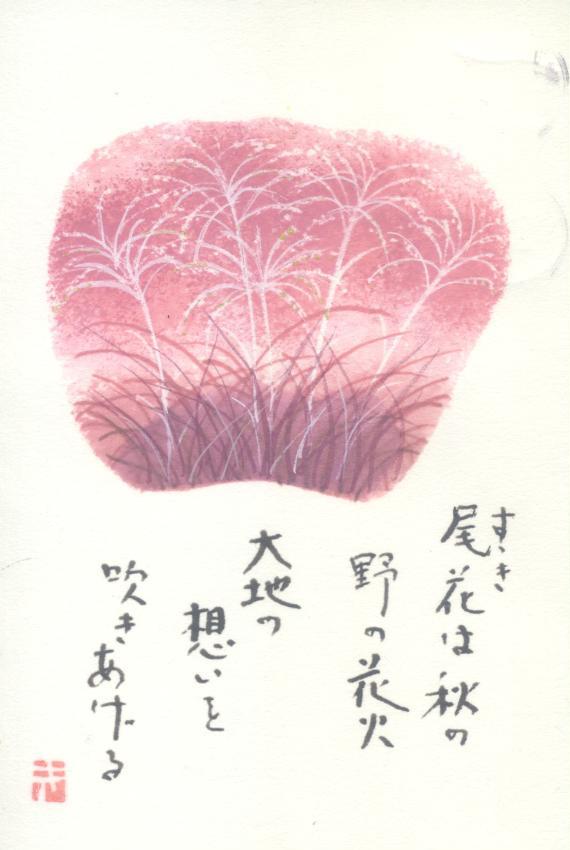 尾花は秋の
すゝき
野の花火
大地の
想いを
吹きあげる